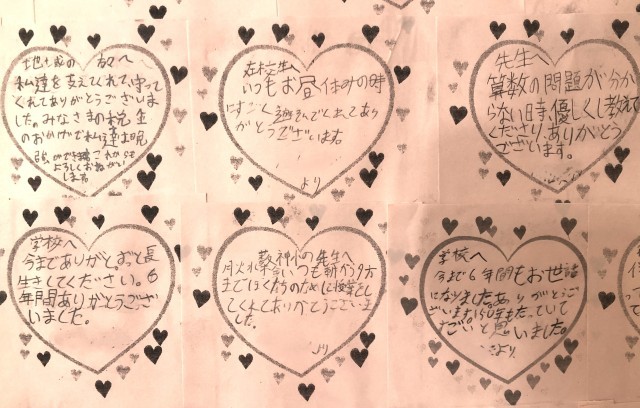 地域の方々へ
私達を支えてくれて、守って
くれてありがとうございま
した。みなさまの税金
のおかげで私達は
これからも
よろしくおねがい
します
在校生へ
いつもお昼休みの時
にすごく遊んでくれてあり
がとうございます。
より
先生へ
算数の問題が分か
らない時、優しく教えて
くださり、ありがとう
ございます。
学校へ
今までありがと。おと長
生きしてください。6
年間ありがとうござ
いました。
小の先生へ
いつも朝から夕方
までぼくたちのために授業をし
てくれてありがとうございま
した。
より
学校へ
今まで6年間もお世話
になりましたありがとうご
ざいます150年もたっていて
すごいと思いました。
より